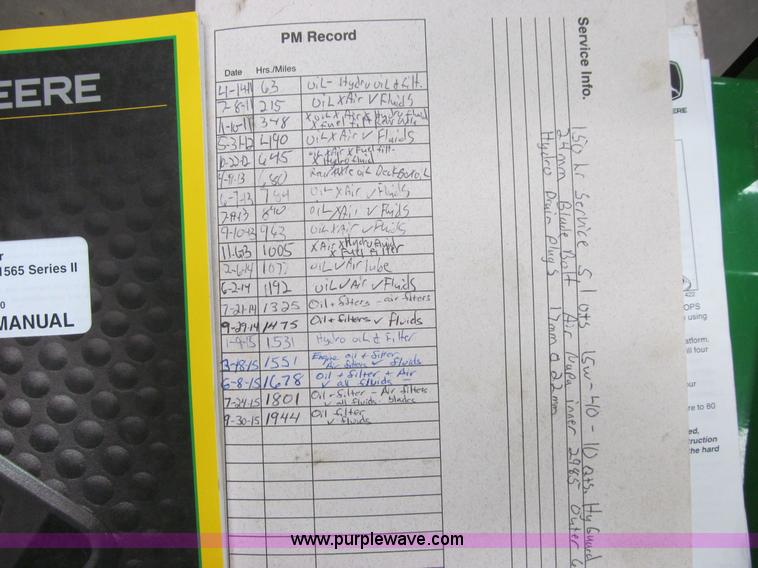 EERE
1565 Series II
MANUAL
PM Record
Date Hrs./Miles
63 OIL - Hydro OIL & Filt.
2-8-11 215 OIL X Air √ Fluids
348
5-31-12 490 OIL X Air √ Fluids
10-22-12 645
4-9-13 680 Rear Axle OIL Deck Gear OIL
6-7-13 784 OIL X Air √ Fluids
840 OIL X Air √ Fluids
943 OIL X Air √ Fluids
1005 X Air X Hydro Fluid
X Fuel Filter
2-6-14 OIL √ Air lube
6-2-14 1192 OIL √ Air √ Fluids
7-21-14 1325 Oil + filters - air filters
9-29-14 1475 Oil + filters √ fluids
1531 Hydro oil & filter
3-18-15 1551 Engine oil + filter
Air filters √ fluids
6-8-15 1678 Oil + filter + Air
√ all fluids -
7-24-15 1801 Oil - filter - Air filters
√ all fluids - blades
9-30-15 1944 Oil filter
√ fluids
Service Info.
150 hr Service 5.1 qts 15w-40 - 10 qts. HyGuard
24mm Blade Bolt Air Napa inner 2985 outer
Hydro Drain Plugs 17mm & 22mm
ERE
422
OPS
using
atform.
ll four
our
re to 80
ed,
ruction
the hard
www.purplewave.com